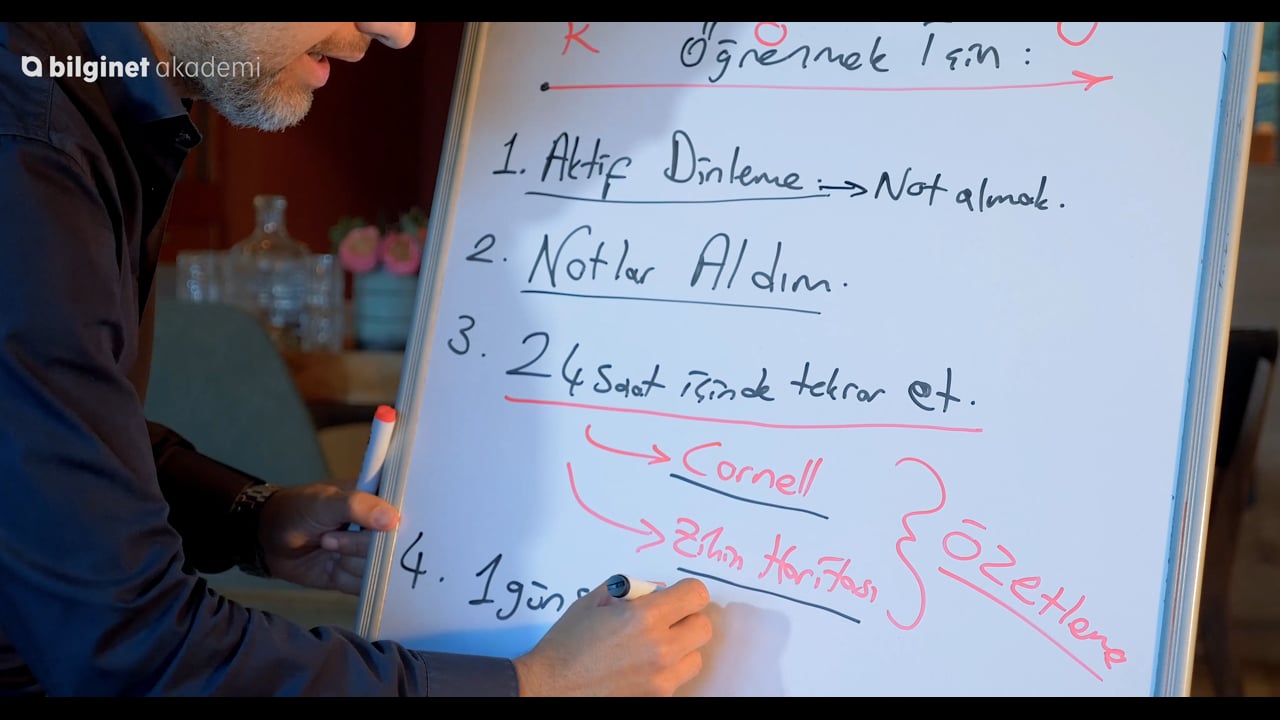 bilginet akademi
K O O
Öğrenmek İçin :
1. Aktif Dinleme. → Not almak.
2. Notlar Aldım.
3. 24 saat içinde tekrar et.
→ Cornell
→ Zihin Haritası
} Özetleme
4. 1 gün s